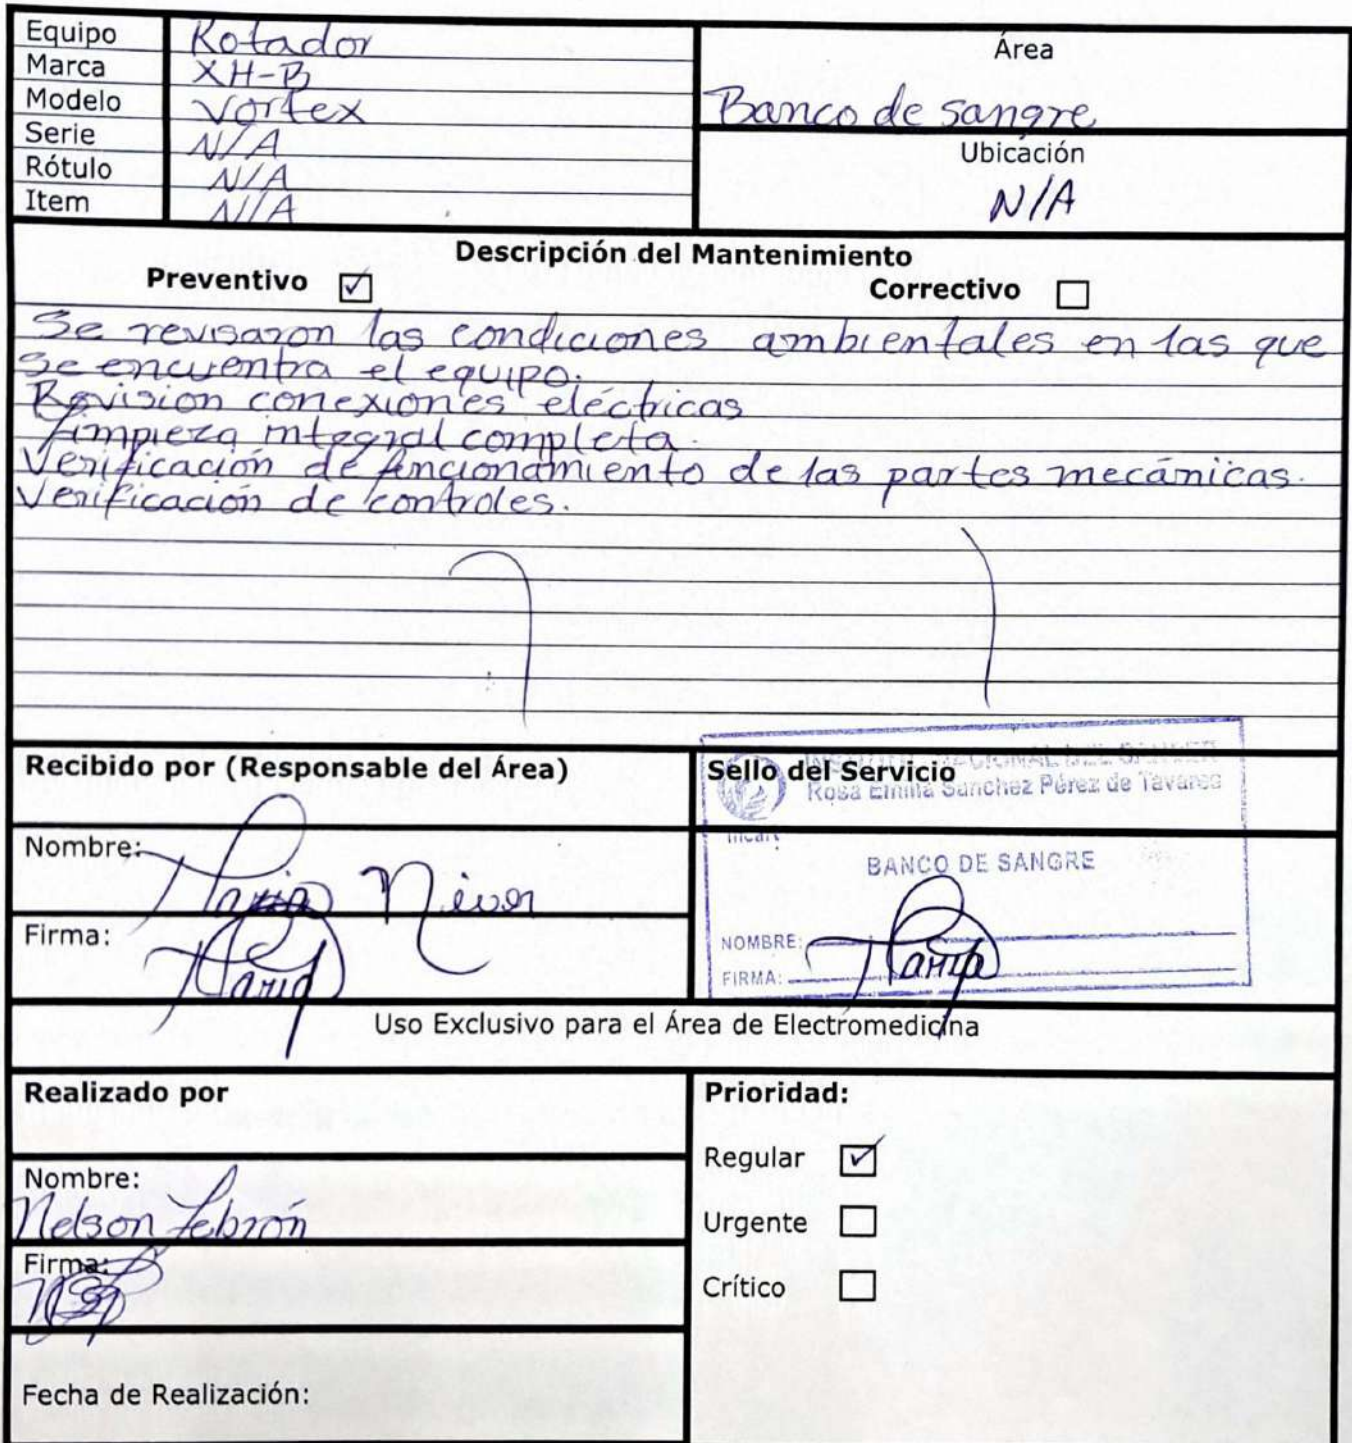 Equipo Rotador
Marca XH-B
Modelo Vortex
Serie N/A
Rótulo N/A
Item N/A
Área
Banco de sangre
Ubicación
N/A
Descripción del Mantenimiento
Preventivo ☑ Correctivo ☐
Se revisaron las condiciones ambientales en las que
se encuentra el equipo.
Revisión conexiones eléctricas
Limpieza integral completa.
Verificación de funcionamiento de las partes mecánicas.
Verificación de controles.
Recibido por (Responsable del Área)
Nombre: Maria
Firma: Maria
Sello del Servicio
NACIONAL DEL
Rosa Emilia Sánchez Pérez de Tavares
BANCO DE SANGRE
NOMBRE: Maria
FIRMA:
Uso Exclusivo para el Área de Electromedicina
Realizado por
Nombre:
Nelson Lebrón
Firma:
Fecha de Realización:
Prioridad:
Regular ☑
Urgente ☐
Crítico ☐